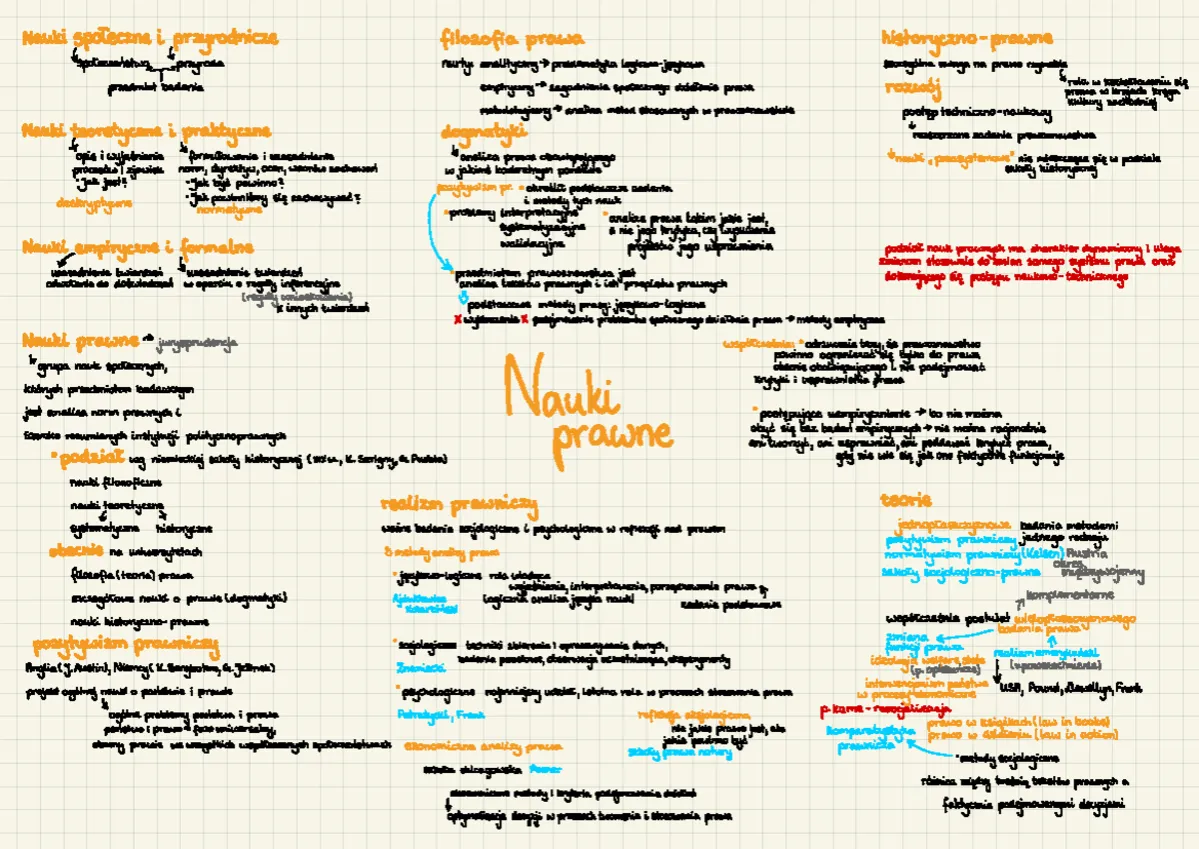 Nauki społeczne i przyrodnicze
społeczeństwo przyroda
przedmiot badania
Nauki teoretyczne i praktyczne
opis i wyjaśnianie
procesów i zjawisk
"Jak jest?"
deskryptywne
formułowanie i uzasadnianie
norm, dyrektyw, ocen, wzorów zachowań
"Jak być powinno?"
"Jak powinniśmy się zachowywać?"
normatywne
Nauki empiryczne i formalne
uzasadnienie twierdzeń
odwołanie do doświadczeń
uzasadnienie twierdzeń
w oparciu o reguły inferencyjne
(reguły wnioskowania)
z innych twierdzeń
Nauki prawne → jurysprudencja
grupa nauk społecznych,
których przedmiotem badawczym
jest analiza norm prawnych i
szeroko rozumianych instytucji polityczno prawnych
podział wg niemieckiej szkoły historycznej (XIX w., K. Savigny, G. Puchta)
nauki filozoficzne
nauki teoretyczne
systematyczne historyczne
obecnie na uniwersytetach
filozofia (teoria) prawa
szczegółowe nauki o prawie (dogmatyki)
nauki historyczno-prawne
pozytywizm prawniczy
Anglia (J. Austin), Niemcy (K. Bergbohm, G. Jellinek)
projekt ogólnej nauki o państwie i prawie
ogólne problemy państwa i prawa
państwo i prawo: fakt uniwersalny,
obecny prawie we wszystkich współczesnych społeczeństwach
filozofia prawa
nurty: analityczny → problematyka logiczno-językowa
empiryczny → zagadnienia społecznego działania prawa
metodologiczny → analiza metod stosowanych w prawoznawstwie
dogmatyki
analiza prawa obowiązującego
w jakimś konkretnym porządku
pozytywizm pr. określił podstawowe zadania
i metody tych nauk
problemy interpretacyjne
systematyzacyjne
walidacyjne
analiza prawa takim jakie jest,
a nie jego krytyka, czy wysuwanie
projektów jego usprawnienia
przedmiotem prawoznawstwa jest
analiza tekstów prawnych i ich przepisów prawnych
podstawowe metody pracy: językowo-logiczne
x wykluczenie x podejmowanie problemów społecznego działania prawa → metody empiryczne
współcześnie: odrzucenie tezy, że prawoznawstwo
powinno ograniczać się tylko do prawa
obecnie obowiązującego i nie podejmować
krytyki i usprawnienia prawa
postępujące uempirycznienie → bo nie można
obyć się bez badań empirycznych → nie można racjonalnie
ani tworzyć, ani usprawniać, ani poddawać krytyce prawa,
gdy nie wie się jak ono faktycznie funkcjonuje
Nauki
prawne
historyczno-prawne
szczególna uwaga na prawo rzymskie
rola w kształtowaniu się
prawa w krajach kręgu
kultury zachodniej
rozwój
postęp techniczno-naukowy
rozszerzone zadania prawoznawstwa
nauki "pozasystemowe" nie mieszczące się w podziale
szkoły historycznej
podział nauk prawnych ma charakter dynamiczny i ulega
zmianom stosownie do zmian samego systemu prawa oraz
dokonującego się postępu naukowo-technicznego
realizm prawniczy
ważne badania socjologiczne i psychologiczne w refleksji nad prawem
3 metody analizy prawa
językowo-logiczne rola wiodąca
wyjaśnianie, interpretowanie, porządkowanie prawa
logiczna analiza języka nauki
zadania podstawowe
Ajdukiewicz
socjologiczne techniki zbierania i opracowywania danych,
badania panelowe, obserwacja uczestnicząca, eksperymenty
Znaniecki
psychologiczne najmniejszy udział, istotna rola w procesach stosowania prawa
Petrażycki, Frank
refleksja aksjologiczna
nie jakie prawo jest, ale
jakie powinno być
szkoły prawa natury
ekonomiczna analiza prawa
szkoła chicagowska Posner
ekonomiczne metody i kryteria podejmowania działań
optymalizacja decyzji w procesach tworzenia i stosowania prawa
teorie
jednopłaszczyznowe badania metodami
jednego rodzaju
pozytywizm prawniczy
normatywizm prawniczy (Kelsen) Austria
okres
międzywojenny
szkoły socjologiczno-prawne
komplementarne
współcześnie postulat wielopłaszczyznowego
badania prawa
zmiana
funkcji prawa
realizm amerykański
(upowszechnienie)
USA, Pound, Llewellyn, Frank
ideologia welfare state
(p. opiekuńcze)
interwencjonizm państwa
w procesy ekonomiczne
p. karne - resocjalizacja
komparatystyka
prawnicza
prawo w książkach (law in books)
prawo w działaniu (law in action)
metody socjologiczne
różnica między treścią tekstów prawnych a
faktycznie podejmowanymi decyzjami